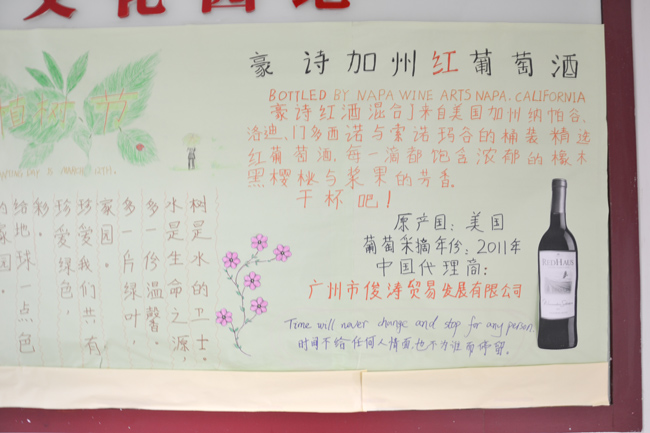 文化园地
植树节
豪诗加州红葡萄酒
BOTTLED BY NAPA WINE ARTS NAPA. CALIFORNIA
豪诗红酒混合了来自美国加州纳帕谷、
洛迪、门多西诺与索诺玛谷的桶装精选
红葡萄酒.每一滴都饱含浓郁的橡木
黑樱桃与浆果的芳香.
干杯吧！
原产国：美国
葡萄采摘年份：2011年
中国代理商：
广州市俊涛贸易发展有限公司
Time will never change and stop for any person.
时间不给任何人情面,也不为谁而停留。
树是水的卫士。
水是生命之源，
多一份温馨。
多一片绿叶，
家园。
珍爱我们共有
珍爱绿色，
彩。
给地球一点色